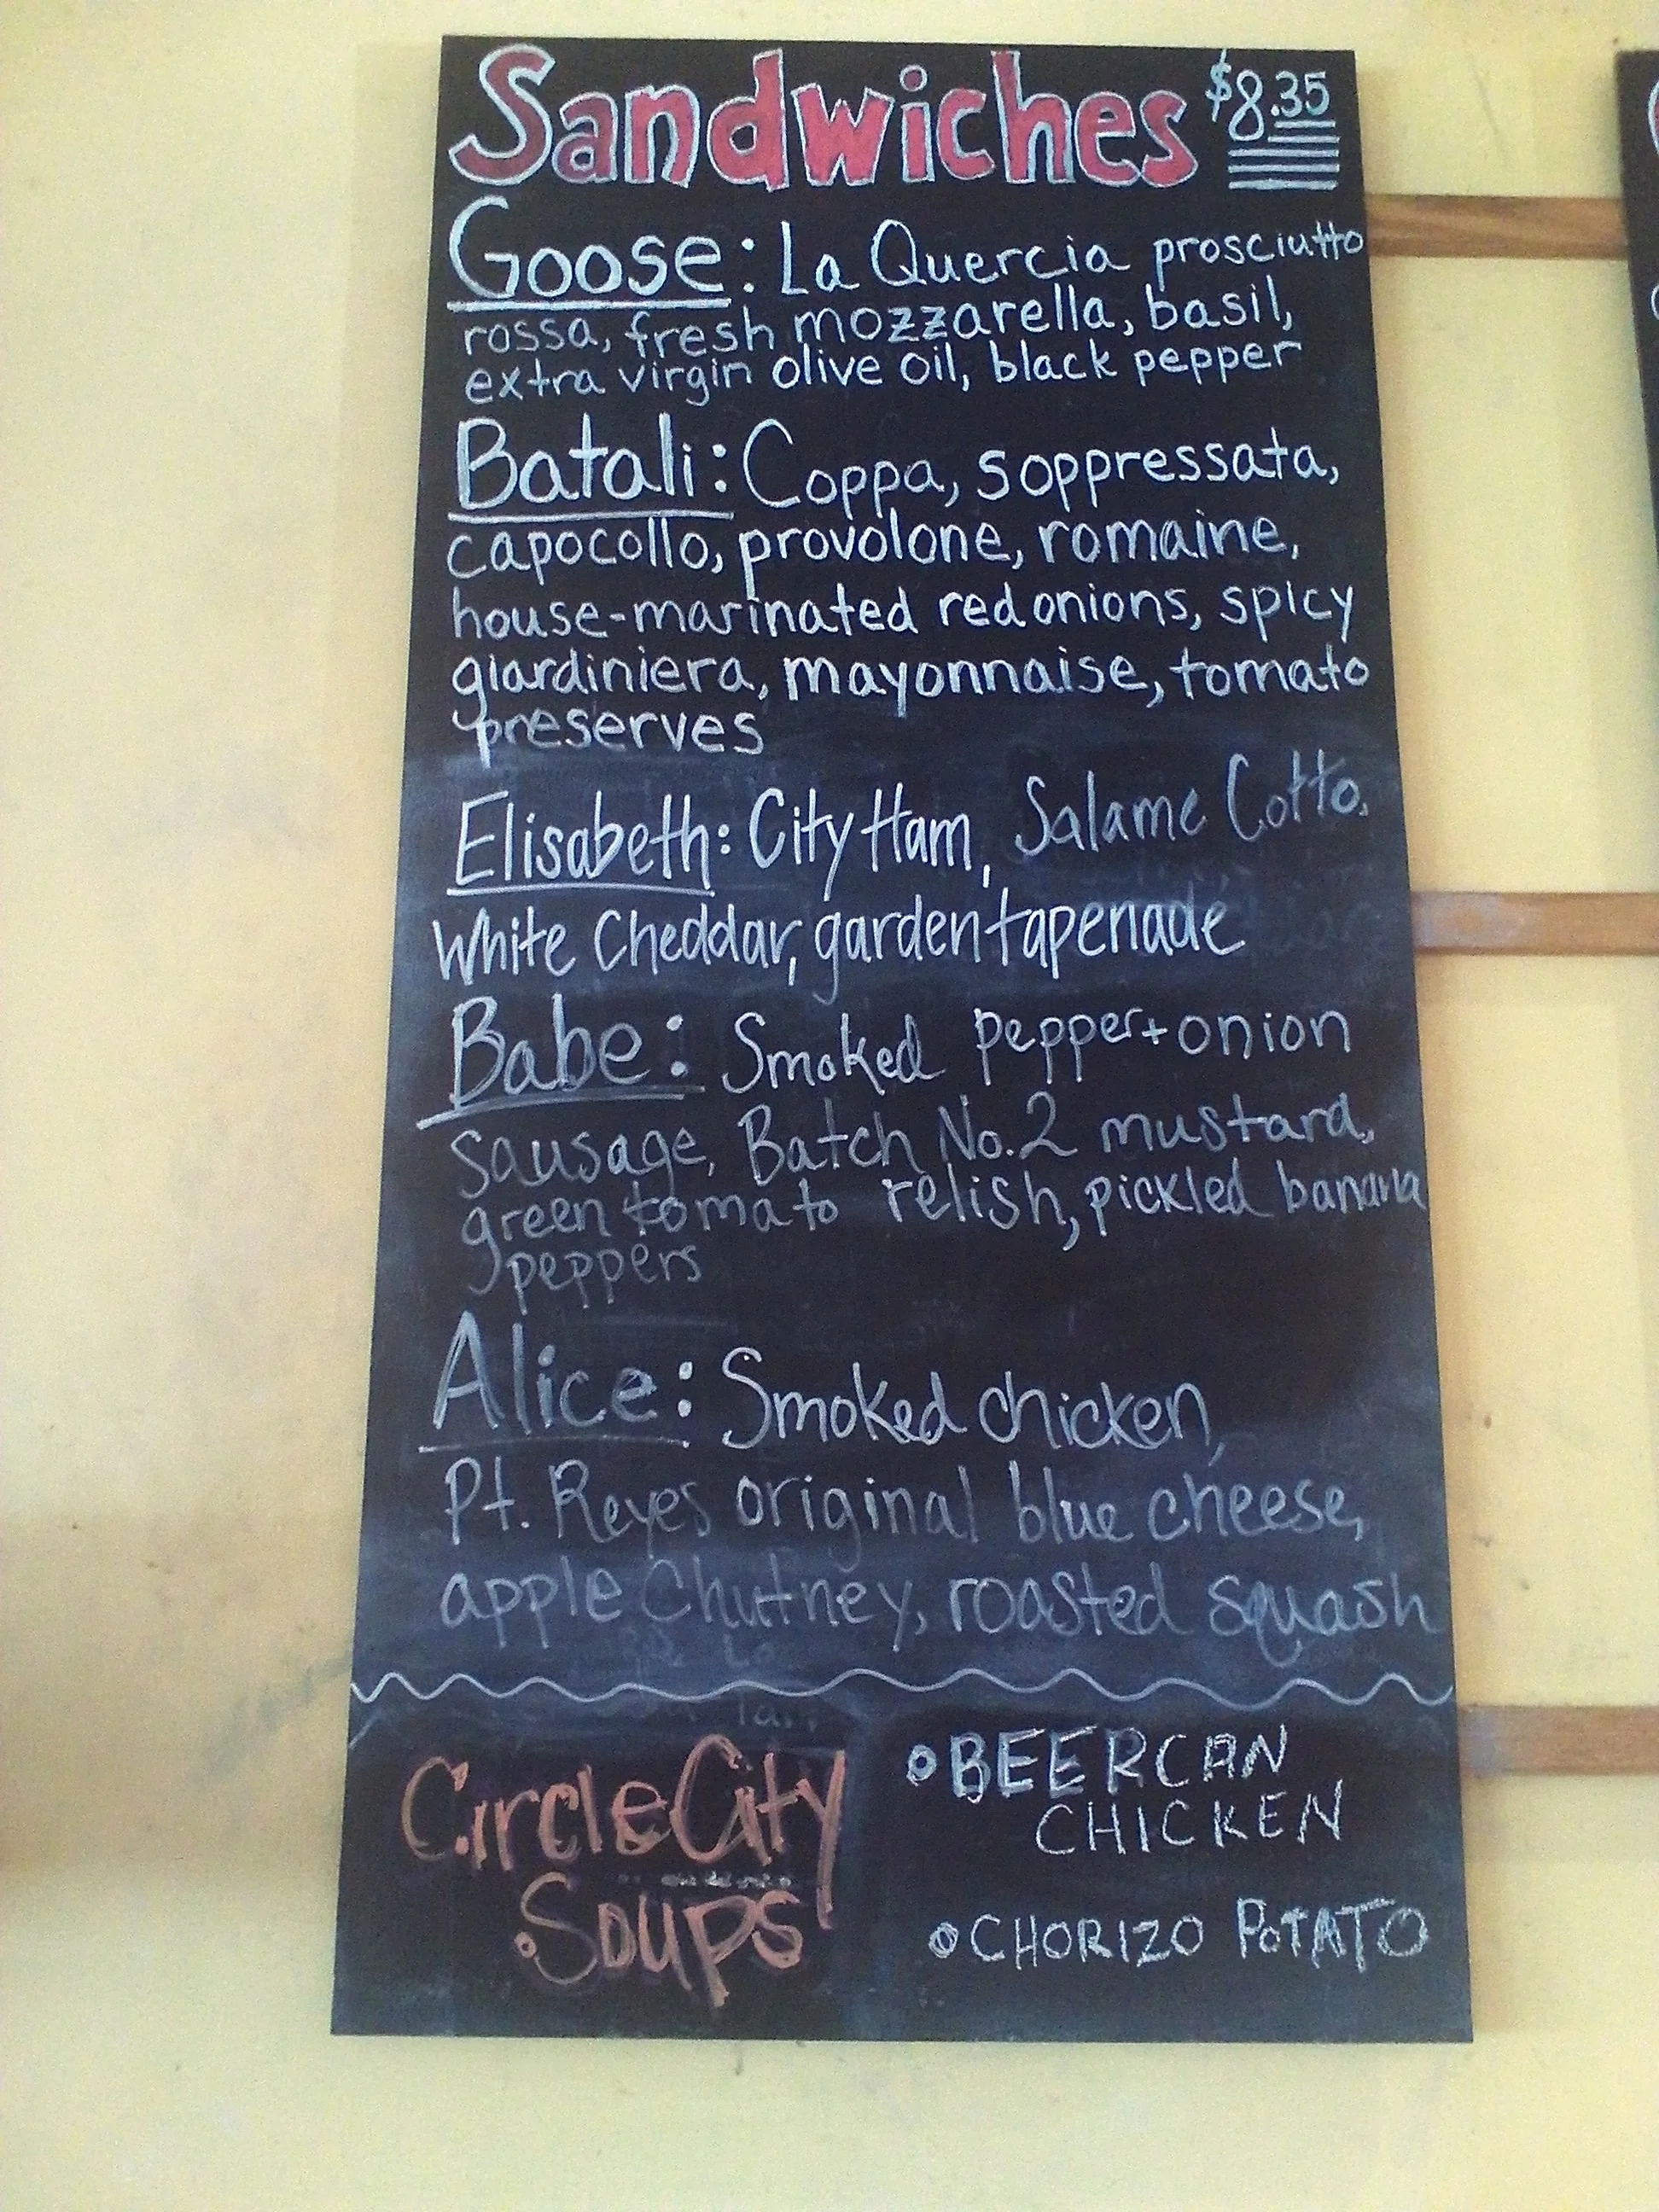 Sandwiches $8.35
Goose: La Quercia prosciutto
rossa, fresh mozzarella, basil,
extra virgin olive oil, black pepper
Batali: Coppa, soppressata,
capocollo, provolone, romaine,
house-marinated red onions, spicy
giardiniera, mayonnaise, tomato
preserves
Elisabeth: City Ham, Salame Cotto,
White Cheddar, garden tapenade
Babe: Smoked pepper + onion
sausage, Batch No. 2 mustard,
green tomato relish, pickled banana
peppers
Alice: Smoked chicken,
Pt. Reyes original blue cheese,
apple Chutney, roasted squash
Circle City
Soups
• BEERCAN
CHICKEN
• CHORIZO POTATO